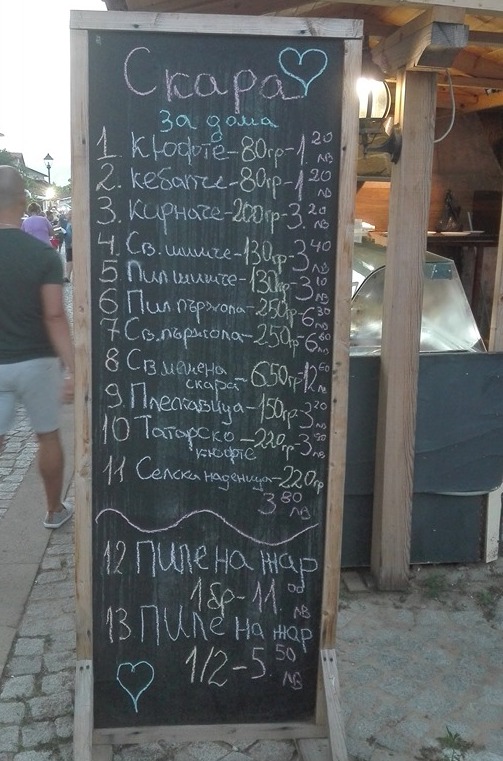 Скара
За дома
1. Кюфте-80гр-1.20 лв
2. Кебапче-80гр-1.20 лв
3. Карначе-200гр-3.20 лв
4. Св. шишче-130гр-3.40 лв
5 Пил шишче-130гр-3.10 лв
6 Пил пържола-250гр-6.30 лв
7 Св. пържола-250гр-6.60 лв
8 Св мешена
скара-650гр-12.60 лв
9. Плескавица-150гр-3.20 лв
10 Татарско-220гр-3. лв
кюфте
11 Селска наденица-220гр
3.80 лв
12 Пиле на жар
1бр-11.00 лв
13 Пиле на жар
1/2-5.50 лв